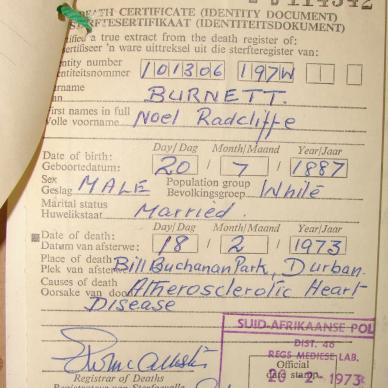 DEATH CERTIFICATE (IDENTITY DOCUMENT)
STERFTESERTIFIKAAT (IDENTITEITSDOKUMENT)
Certified a true extract from the death register of:
Gesertifiseer 'n ware uittreksel uit die sterfteregister van:
Identity number
Identiteitsnommer 101306 197W
BURNETT.
First names in full
Volle voorname Noel Radcliffe
Day/Dag Month/Maand Year/Jaar
Date of birth:
Geboortedatum: 20 / 7 / 1887
Sex Population group
Geslag MALE Bevolkingsgroep White
Marital status
Huwelikstaat Married.
Day/Dag Month/Maand Year/Jaar
Date of death:
Datum van afsterwe: 18 / 2 / 1973
Place of death
Plek van afsterwe Bill Buchanan Park, Durban.
Causes of death
Oorsake van dood Atherosclerotic Heart
Disease
SUID-AFRIKAANSE POL
DIST. 46
REGS MEDIESE LAB.
Official
20 -2- 1973
date stamp
Registrar of Deaths